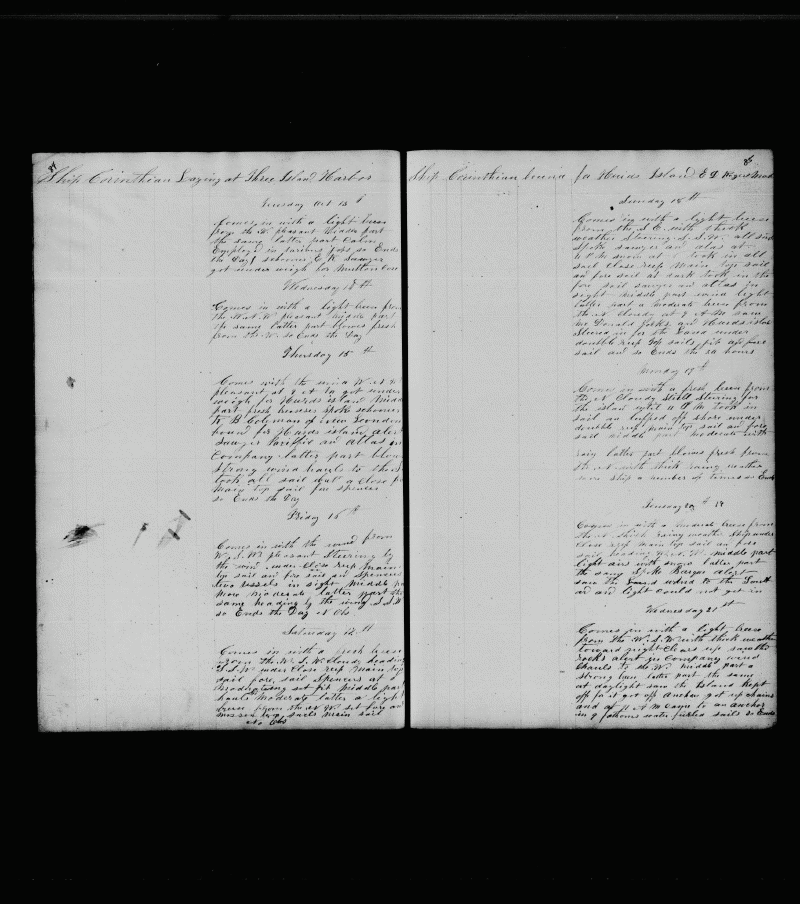 Ship Corinthian Laying at Three Island Harbor
Tuesday Oct 13 th
Comes in with a light breeze
from the N pleasant Middle part
the same latter part Calm
Employed in various Jobs so Ends
the Day schooner E R Sawyer
got under weigh for Mutton Cove
Wednesday 14 th
Comes in with a light breeze from
the W.N.W pleasant middle part
the same latter part blows fresh
from the N. so Ends the Day
Thursday 15 th
Comes with the wind W.N.W
pleasant at 8 A M got under
weigh for Hurds island Middle
part fresh breezes spoke schooner
B Coleman of New London
boun for Hurds island alert
Sawyer Pacific an atlas in
Company latter part blows
strong wind hauls to the S
took all sail but a Close
main top sail fore spencer
so Ends the Day
Friday 16 th
Comes in with the wind from
W.S.W pleasant Steering by
the wind under Close reef Main
top sail an fore sail an Spencers
two vessels in sight middle
more moderate latter part the
same heading by the wind S.S.W
so Ends the Day No Obs
Saturday 17 th
Comes in with a fresh breeze
from the W.S.W Cloudy heading
S.S.W under Close reef main top
sail fore sail Spencers at
middle part
hauls moderate latter a light
breeze from the N W set
sails main sail
No Obs
86
Ship Corinthian bound for Hurds Island
Sunday 18 th
Comes in with a light breeze
from the S.E. with thick
weather Steering S.S.W. all sail
spoke sawyer an atlas at
took in all
sail Close reef Main top sail
an fore sail at dark took in the
fore sail sawyer an atlas in
sight middle part wind light
latter part a moderate breeze from
the N cloudy at 9 A M saw
Mc Donald rocks an Hurds island
Steered in for the land under
double reef top sails jib an fore
sail an so Ends the 24 hours
Monday 19 th
Comes in with a fresh breeze from
the N Cloudy Still Steering for
the island until 11 A M took in
sail an luffed off shore under
double reef main top sail an fore
sail middle part moderate with
rain latter part blows fresh from
the N with thick rainy weather
wore ship a number of times so Ends
Tuesday 20 th
Comes in with a moderate breeze from
the N thick rainy weather ship under
Close reef main top sail an fore
sail heading W.N.W. middle part
light airs with snow latter part
the same spoke Barque alert
saw the Land wind to the South
an light Could not get in
Wednesday 21 st
Comes in with a light breeze
from the W.S.W with thick weather
toward night Clears up saw the
rocks alert in Company wind
hauls to the W. middle part a
strong breeze latter part the same
at daylight saw the Island Kept
off for it got off anchor got up chains
and at 11 A M Came to an anchor
in 9 fathoms water furled sails so Ends